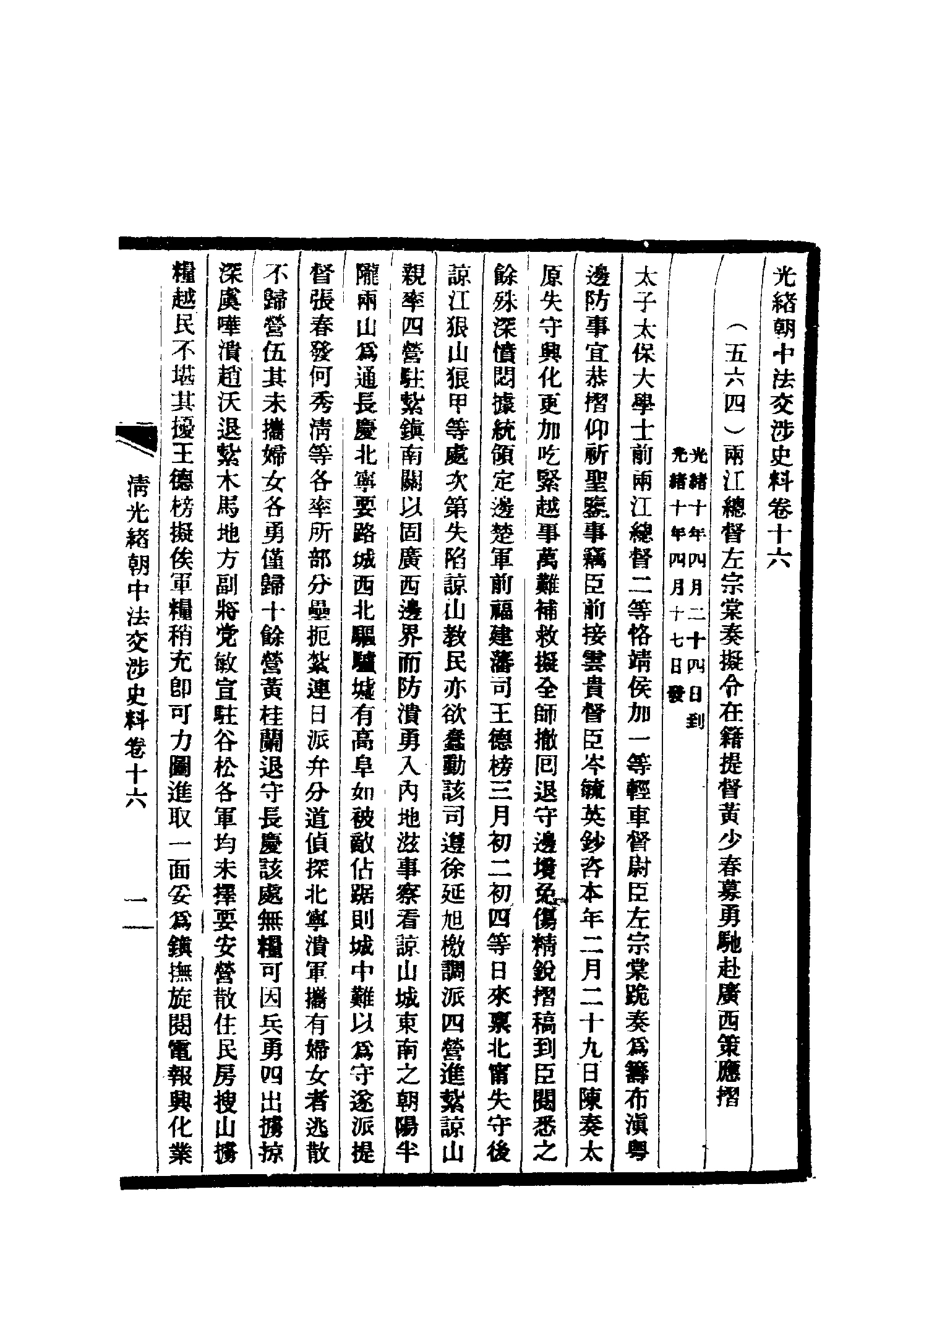 光緒朝中法交涉史料卷十六
（五六四）兩江總督左宗棠奏擬令在籍提督黃少春募勇馳赴廣西策應摺
光緒十年四月二十四日到
光緒十年四月十七日發
太子太保大學士前兩江總督二等恪靖侯加一等輕車督尉臣左宗棠跪奏爲籌布滇粵
邊防事宜恭摺仰祈聖鑒事竊臣前接雲貴督臣岑毓英鈔咨本年二月二十九日陳奏太
原失守興化更加吃緊越事萬難補救擬全師撤回退守邊境免傷精銳摺稿到臣閱悉之
餘殊深憤悶據統領定邊楚軍前福建藩司王德榜三月初二初四等日來稟北甯失守後
諒江狼山狼甲等處次第失陷諒山教民亦欲蠢動該司遵徐延旭檄調派四營進紮諒山
親率四營駐紮鎮南關以固廣西邊界而防潰勇入內地滋事察看諒山城東南之朝陽半
隴兩山爲通長慶北寧要路城西北驅驢墟有高阜如被敵佔踞則城中難以爲守遂派提
督張春發何秀淸等各率所部分壘扼紮連日派弁分道偵探北寧潰軍攜有婦女者逃散
不歸營伍其未攜婦女各勇僅歸十餘營黃桂蘭退守長慶該處無糧可因兵勇四出擄掠
深虞嘩潰趙沃退紮木馬地方副將党敏宣駐谷松各軍均未擇要安營散住民房搜山擄
糧越民不堪其擾王德榜擬俟軍糧稍充卽可力圖進取一面妥爲鎮撫旋閱電報興化業
淸光緒朝中法交涉史料卷十六
一